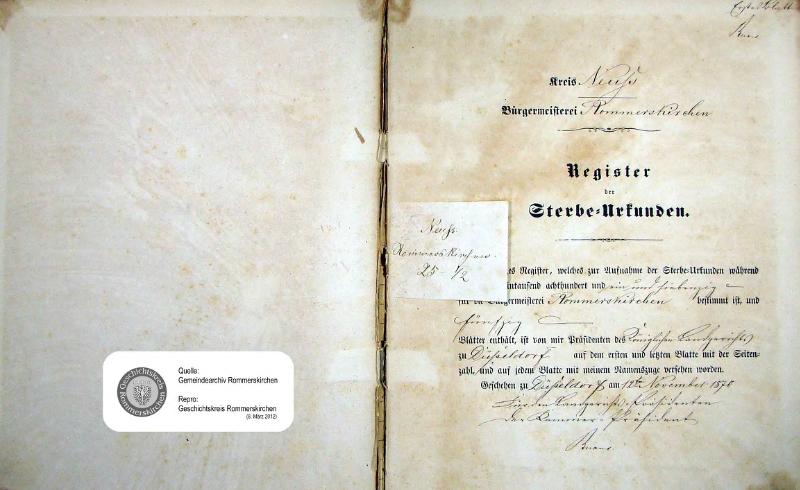 Erstes Blatt
Kreis Neuss
Bürgermeisterei Rommerskirchen
Register
der
Sterbe-Urkunden.
Neuss
Rommerskirchen
25 - 1/2
es Register, welches zur Aufnahme der Sterbe-Urkunden während
intausend achthundert und ein und siebenzig
für die Bürgermeisterei Rommerskirchen bestimmt ist, und
fünfzig
Blätter enthält, ist von mir Präsidenten des Königlichen Landgerichts
zu Düsseldorf auf dem ersten und letzten Blatte mit der Seiten-
zahl, und auf jedem Blatte mit meinem Namenszuge versehen worden.
Geschehen zu Düsseldorf am 12ten November 1870
Für den Landgerichts-Präsidenten
der Kammer-Präsident
Quelle:
Gemeindearchiv Rommerskirchen
Repro:
Geschichtskreis Rommerskirchen
(8. März 2012)
Geschichtskreis
Rommerskirchen